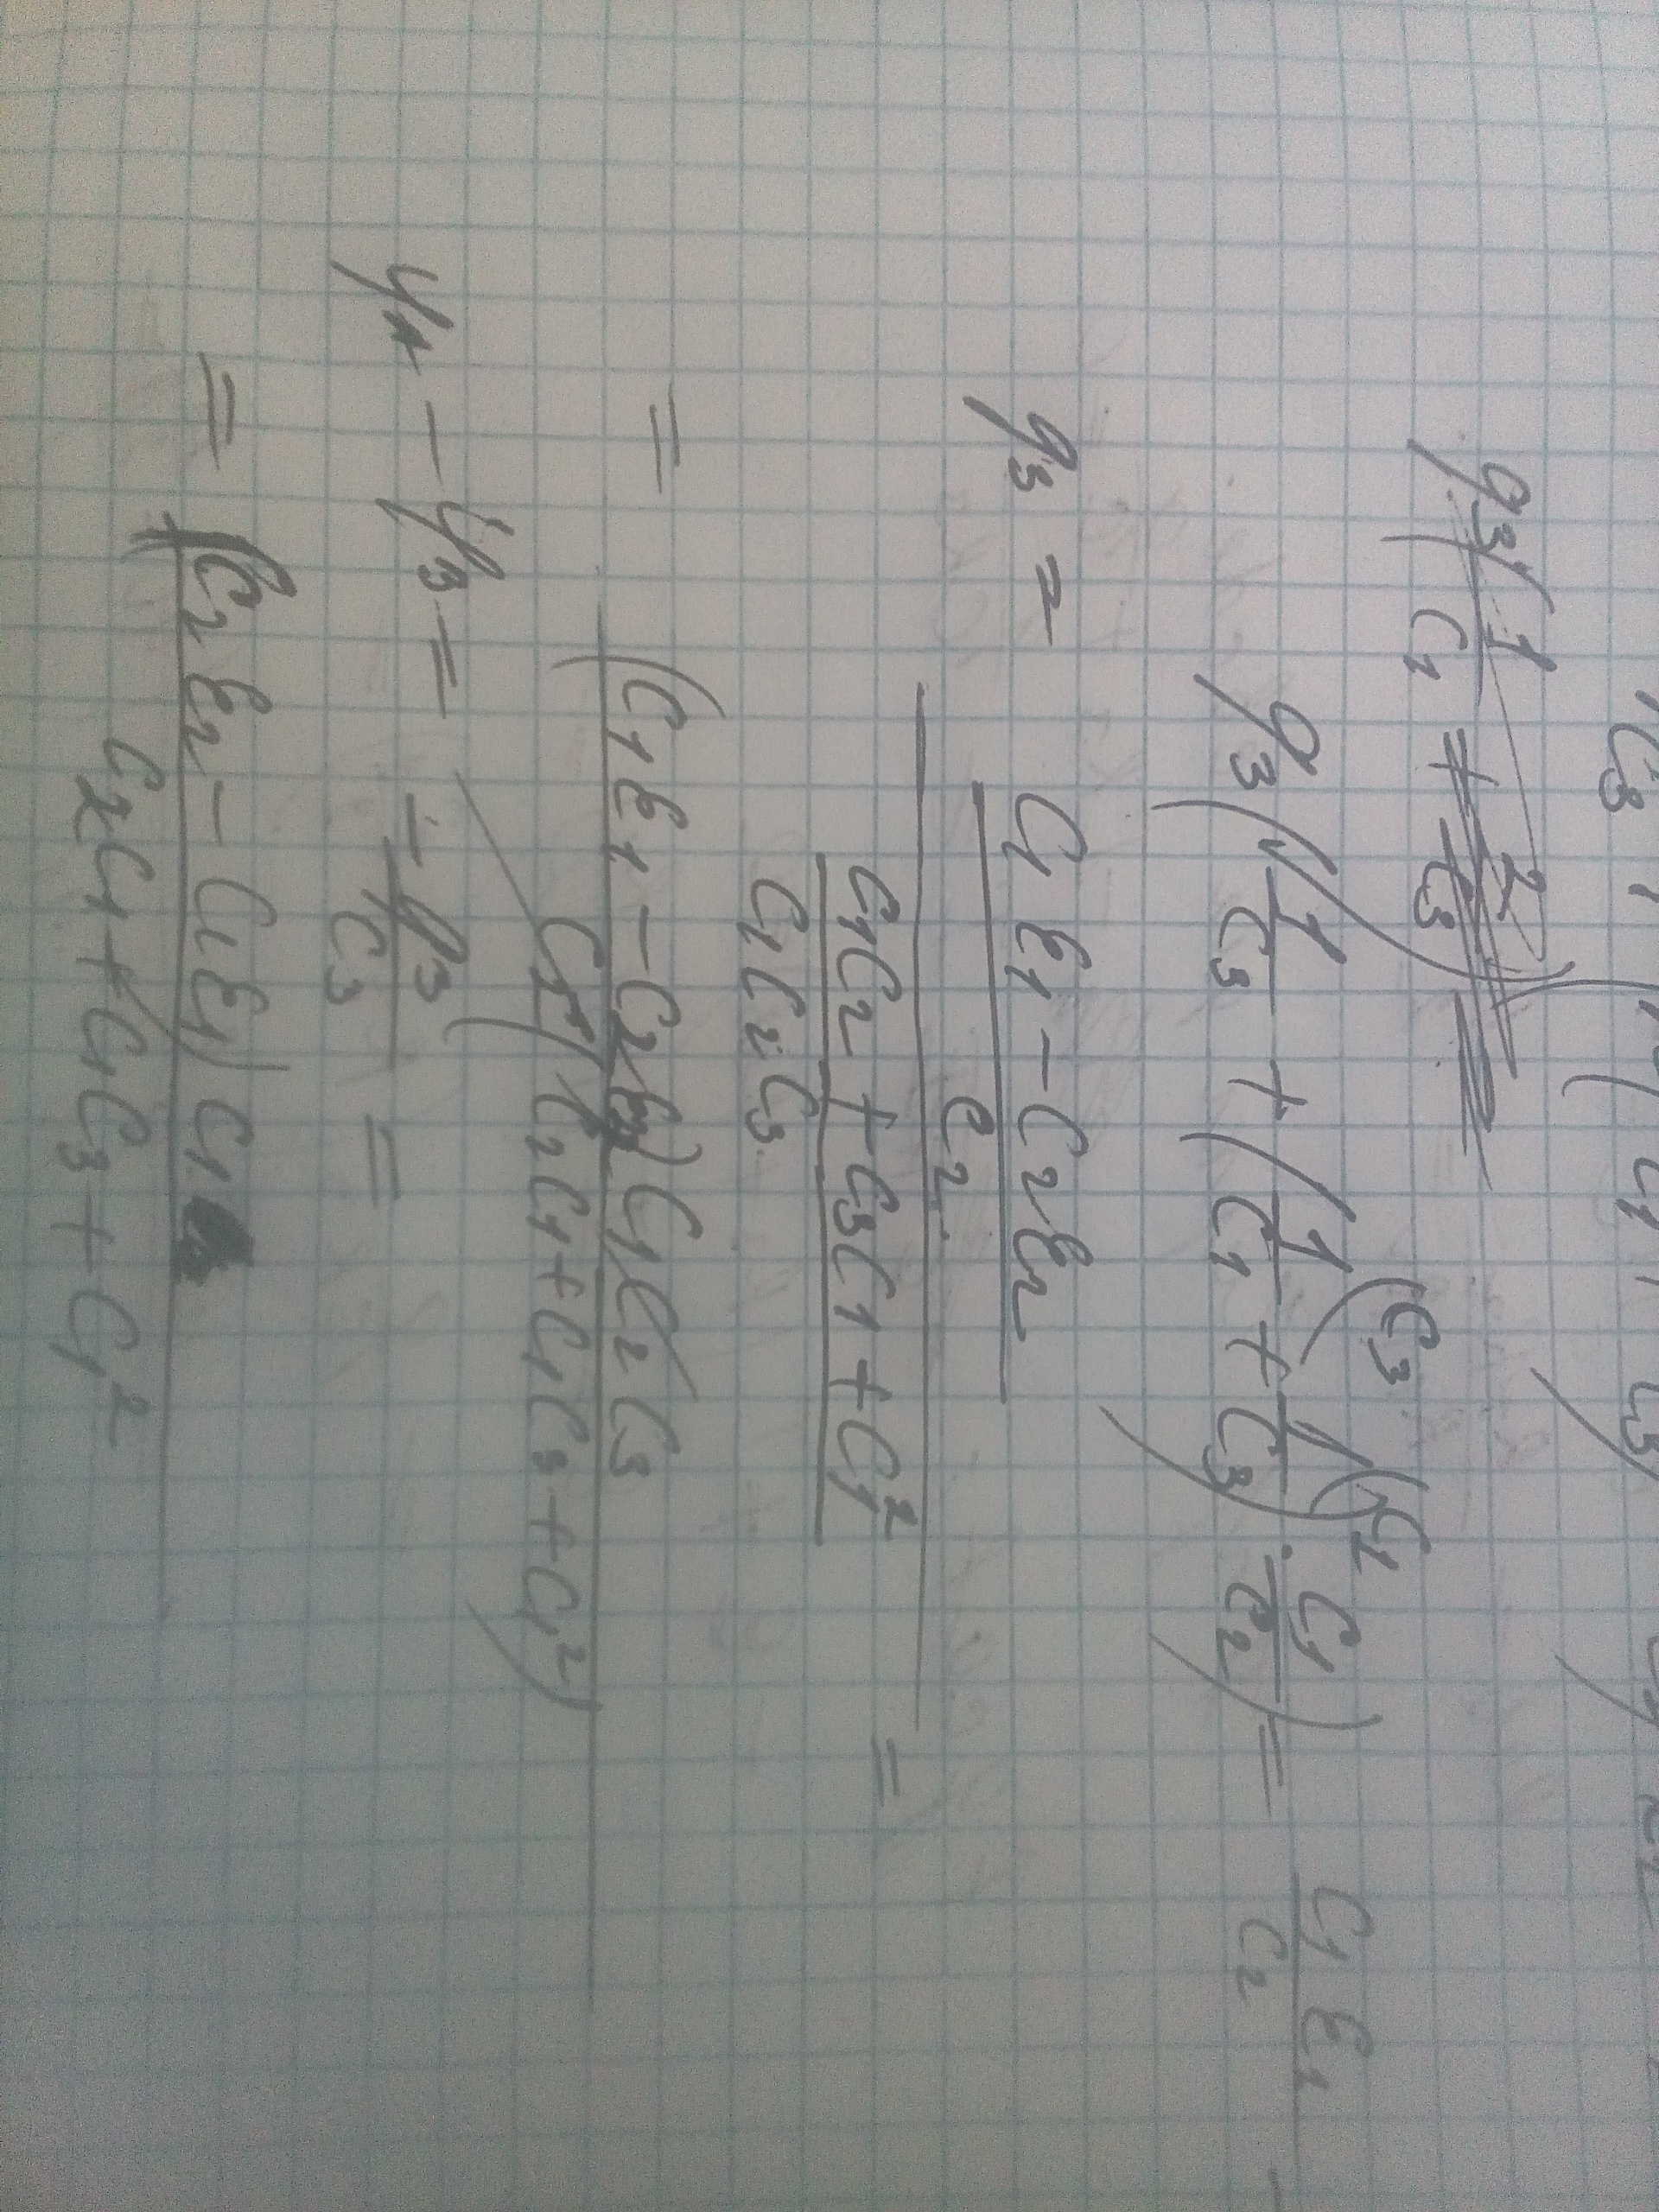 q₃(1/C₁
q₃(1/C₃ + (1/C₁ + 1/C₃) · C₁/C₂) = C₁ε₁/C₂ −
q₃ = ((C₁ε₁ − C₂ε₂)/C₂) / ((C₁C₂ + C₃C₁ + C₁²)/(C₁C₂C₃)) =
= (C₁ε₁ − C₂ε₂) C₁C₂C₃ / (C₂(C₂C₁ + C₁C₃ + C₁²))
φ₁ − φ₃ = −q₃/C₃ =
= (C₂ε₂ − C₁ε₁) C₁ / (C₂C₁ + C₁C₃ + C₁²)